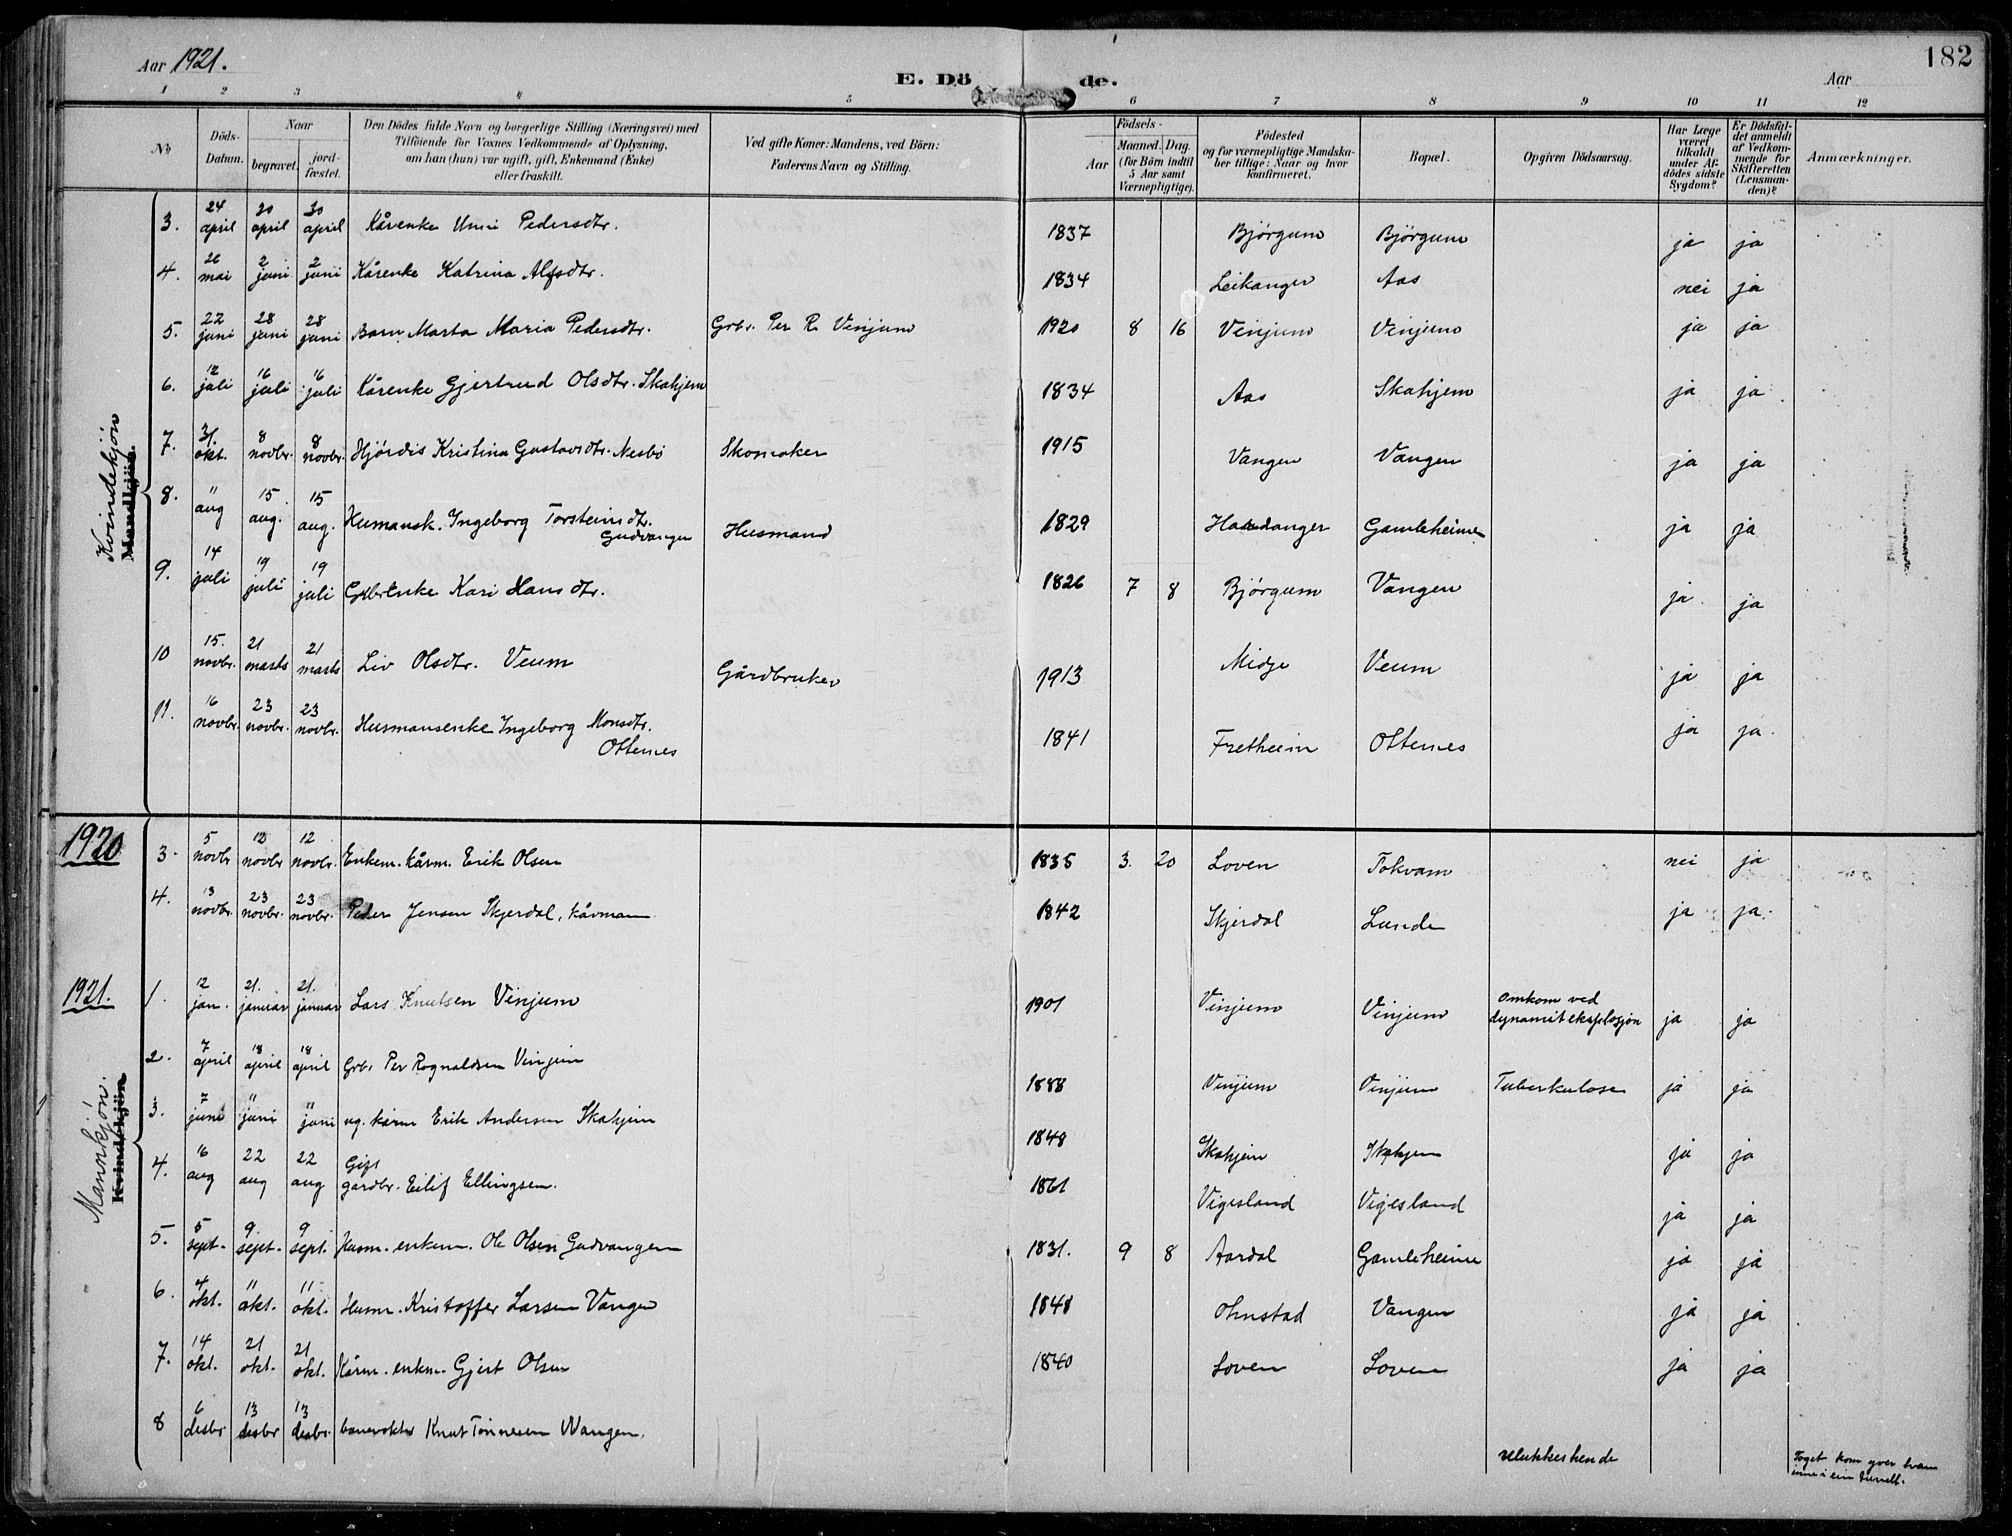 Aar 1921.
E. Dö de.
Aar
182
1 2 3 4 5 6 7 8 9 10 11 12
No
Döds-Datum.
Naar
begravet.
jord-fæstet.
Den Dödes fulde Navn og borgerlige Stilling (Næringsvei) med
Tilföiende for Voxnes Vedkommende af Oplysning,
om han (hun) var ugift, gift, Enkemand (Enke)
eller fraskilt.
Ved gifte Koner: Mandens, ved Börn:
Faderens Navn og Stilling.
Födsels-
Aar
Maaned. Dag.
(for Börn indtil
5 Aar samt
Værnepligtige).
Födested
og for værnepligtige Mandska-
ber tillige: Naar og hvor
konfirmeret.
Bopæl.
Opgiven Dödsaarsag.
Har Læge
været
tilkaldt
under Af-
dödes sidste
Sygdom?
Er Dödsfal-
det anmeldt
af Vedkom-
mende for
Skifteretten
(Lensman-
den)?
Anmærkninger.
Kvindekjøn
Mandkjön.
3. 24 april 30 april 30 april Kårenke Unni Pedersdtr. 1837 Bjørgum Bjørgum ja ja
4. 26 mai 2 juni 2 juni Kårenke Katrina Alfsdtr. 1834 Leikanger Aas nei ja
5. 22 juni 28 juni 28 juni Barn Marta Maria Pedersdtr. Grbr. Per R. Vinjum 1920 8 16 Vinjum Vinjum ja ja
6. 12 juli 16 juli 16 juli Kårenke Gjertrud Olsdtr. Skahjem 1834 Aas Skahjem ja ja
7. 31. okt. 8 novbr. 8 novbr. Hjørdis Kristina Gustavsdtr. Nesbø Skomaker 1915 Vangen Vangen ja ja
8. 11 aug 15 aug. 15 aug. Husmansk. Ingeborg Torsteinsdtr.
Gudvangen Husmand 1829 Hardanger Gamleheimen ja ja
9. 14 juli 19 juli 19 juli Gbrenke Kari Hansdtr. 1826 7 8 Bjørgum Vangen ja ja
10 15. novbr. 21 marts 21 marts Liv Olsdtr. Veum Gårdbruker 1913 Midje Veum ja ja
11. 16 novbr. 23 novbr. 23 novbr. Husmansenke Ingeborg Monsdtr.
Otternes 1841 Fretheim Otternes ja ja.
1920
3. 5 novbr 12 novbr 12 novbr. Enkem. kårm. Erik Olsen 1835 3. 20 Loven Tokvam nei ja
4. 13 novbr. 23 novbr. 23 novbr. Peder Jensen Skjerdal, kårman 1842 Skjerdal Lunde ja ja.
1921.
Mannkjøn.
Kvindekjön
1. 12 jan. 21. januar 21. januar Lars Knutsen Vinjum 1901 Vinjum Vinjum omkom ved
dynamiteksplosjon ja ja
2. 7 april 18 april 18 april Grbr Per Ragnaldsen Vinjum 1888 Vinjum Vinjum Tuberkulose ja ja
3. 7 juni 11 juni 11 juni ug. kårm Erik Andersen Skahjem 1848 Skahjem Skahjem ja ja
4. 16 aug 22 aug 22 aug Gift
gardbr. Eilif Ellingsen. 1861 Vigesland Vigesland ja ja
5. 5 sept. 9. sept. 9 sept. Husm. enkem. Ole Olsen Gudvangen 1831. 9 8 Aardal Gamleheime ja ja
6. 4 okt. 11 okt. 11 okt. Husm. Kristoffer Larsen Vangen 1848 Ohnstad Vangen ja ja
7. 14 okt. 21 okt. 21 okt. Kårm. enkm. Gjert Olsen 1840 Loven Loven ja ja
8 6 desbr 13 desbr 13 desbr. banevokter Knut Tønnesen Wangen. Ulukkeshende Toget kom yver ham
inne i ein tunell.